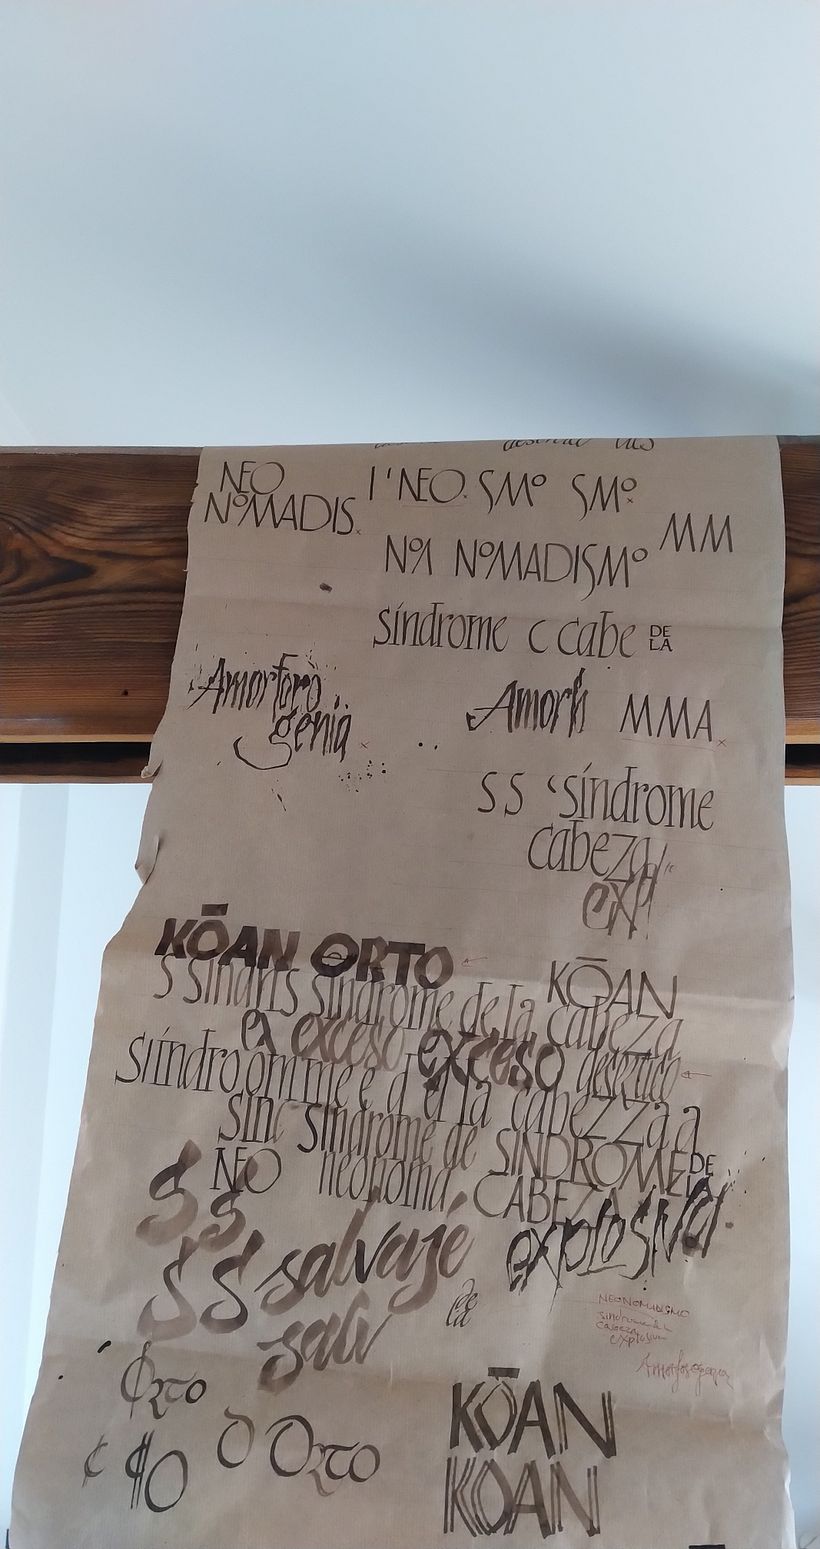 NEO
NOMADIS
I 'NEO. SMO SMO
MM
NOM NOMADISMO
síndrome c cabe DE LA
Amorforo
genia
Amorh MMA
S S 'síndrome
cabeza
expl
KŌAN ORTO
KŌAN
síndrome de la cabeza
ex exceso exceso desértico
siíndroommee d el la cabezzaa
sinc síndrome de SÍNDROME DE
NEO neonoma CABEZA
S S
explosiva
S S salvaje
salv
de
NEONOMADISMO
síndrome
cabeza
explosiva
Orto
¢ $O O Orto
KŌAN
KOAN